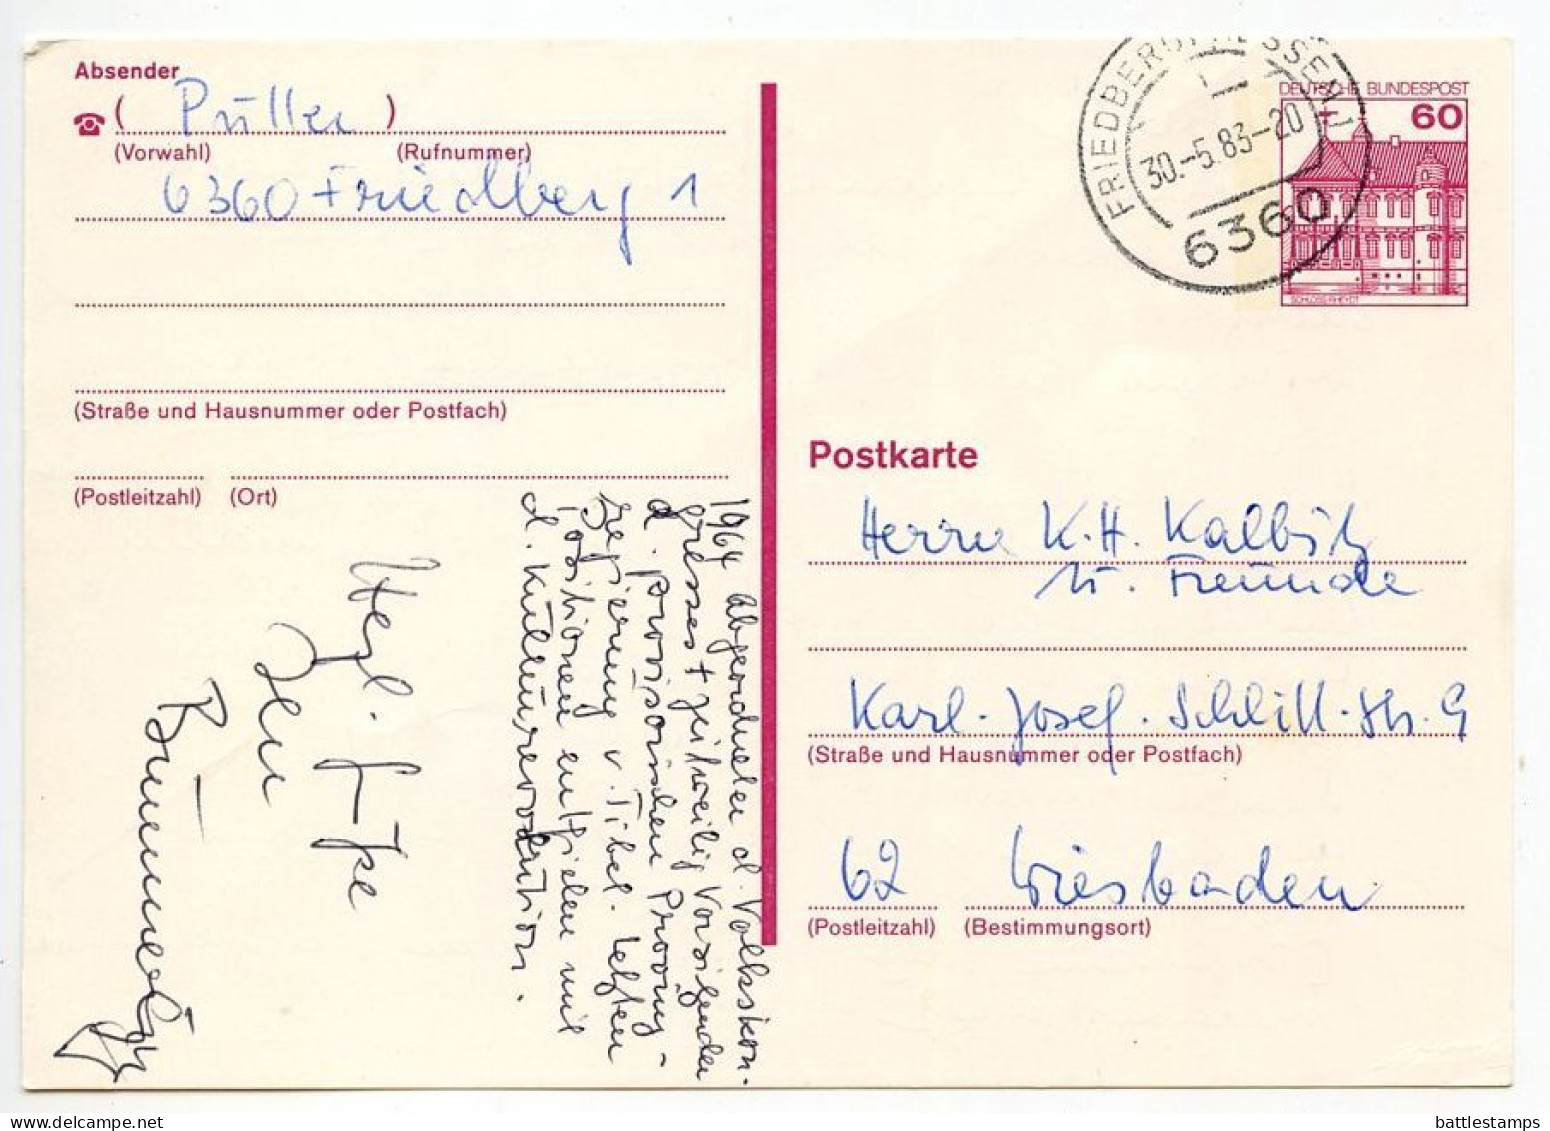 Absender
( Püller )
(Vorwahl) (Rufnummer)
6360 Friedberg 1
(Straße und Hausnummer oder Postfach)
(Postleitzahl) (Ort)
1964 Abgeordneter d. Volkskon-
gresses + zeitweilig Vorsitzender
d. provisorischen Provinz-
regierung v. Tibet. letzten
Positionen entfielen mit
d. Kulturrevolution.
Herzl.
Ihr
FRIEDBERG, HESSEN 1
30.-5.83-20
6360
DEUTSCHE BUNDESPOST
60
SCHLOSS RHEYDT
Postkarte
Herrn K.H. Kalbitz
u. Freunde
Karl-Josef-Schlitt-Str. 9
(Straße und Hausnummer oder Postfach)
62 Wiesbaden
(Postleitzahl) (Bestimmungsort)
hipstamp.com/store/the-stamp-shelf
battlestamps